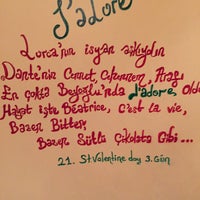 J'adore
Lorca'nın isyan aşkıydın
Dante'nin Cennet, Cehennem, Araf'ı
En çokta Beyoğlu'nda J'adore, Oldu
Hayat işte Béatrice, C'est la vie,
Bazen Bitter,
Bazen Sütlü Çikolata Gibi ...
21. St Valentine day 3. Gün